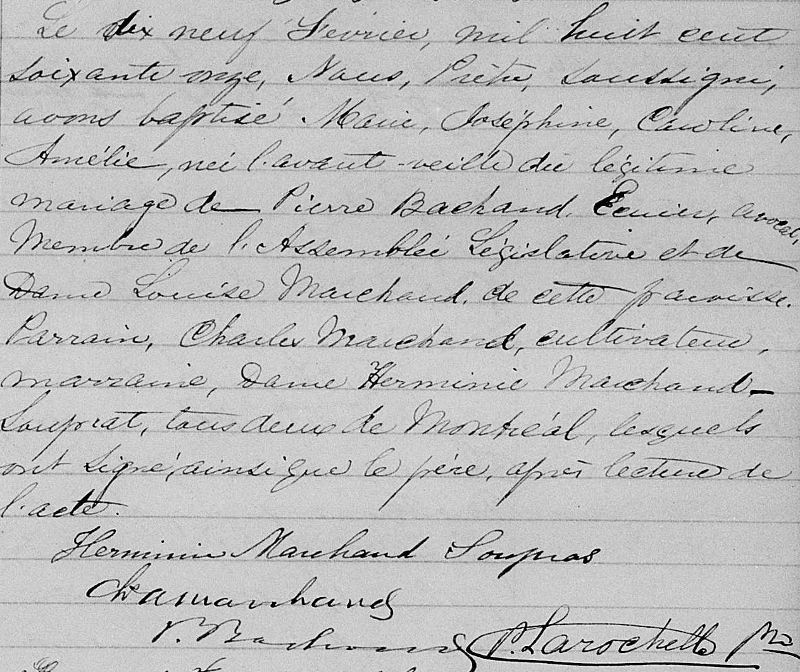 Le dix neuf Février, mil huit cent
soixante onze, Nous, Prêtre, soussigné,
avons baptisé Marie, Joséphine, Caroline,
Amélie, née l'avant-veille du légitime
mariage de Pierre Bachand, Ecuier, avocat,
Membre de l'Assemblée Législative et de
Dame Louise Marchand, de cette paroisse.
Parrain, Charles Marchand, cultivateur,
marraine, Dame Herminie Marchand-
Souprat, tous deux de Montréal, lesquels
ont signé, ainsi que le père, après lecture de
l'acte.
Herminie Marchand Soupras
Chs Marchand
P. Bachand P. Larochelle Ptre